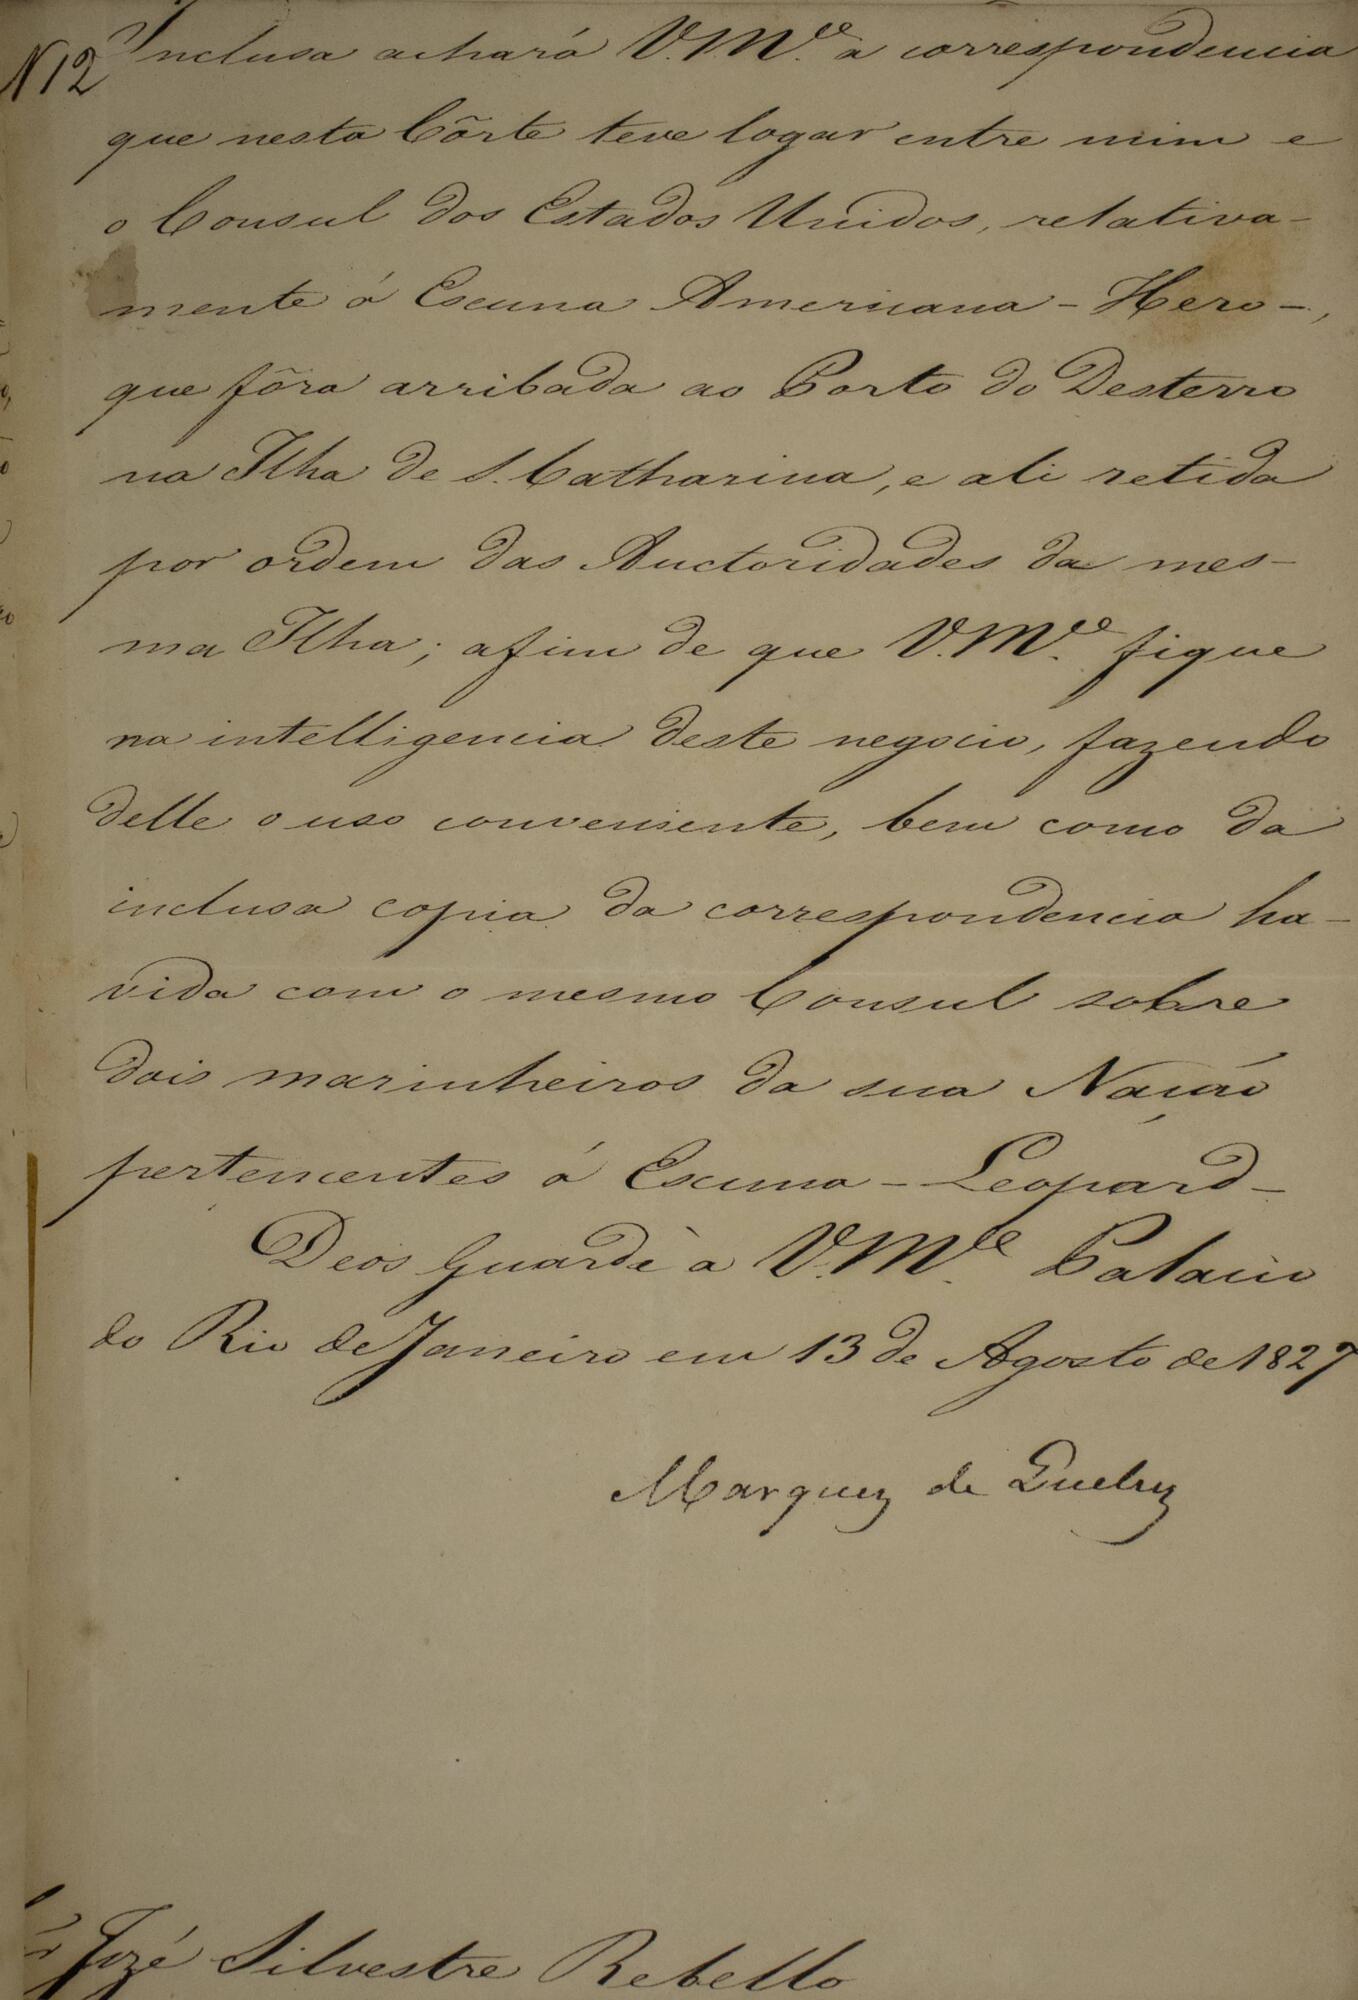 N 12 Inclusa achará V.M.ce a correspondencia
que nesta Côrte teve logar entre mim e
o Consul dos Estados Unidos, relativa-
mente á Escuna Americana - Hero -,
que fôra arribada ao Porto do Desterro
na Ilha de S. Catharina, e ali retida
por ordem das Auctoridades da mes-
ma Ilha; afim de que V.M.ce fique
na intelligencia deste negocio, fazendo
delle o uso conveniente, bem como da
inclusa copia da correspondencia ha-
vida com o mesmo Consul sobre
dois marinheiros da sua Nação
pertencentes á Escuna - Leopard -
Deos Guarde a V.M.ce Palacio
do Rio de Janeiro em 13 de Agosto de 1827
Marquez de Queluz
Jozé Silvestre Rebello